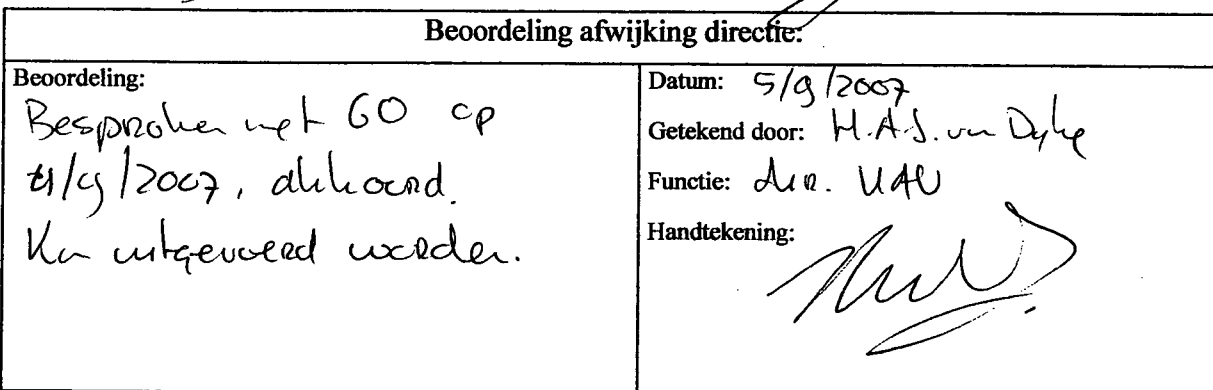 Beoordeling afwijking directie:
Beoordeling:
Besproken met GO op
4/9/2007, akkoord.
Kan uitgevoerd worden.
Datum: 5/9/2007
Getekend door: H.A.J. van Dyke
Functie: dir. UAV
Handtekening: